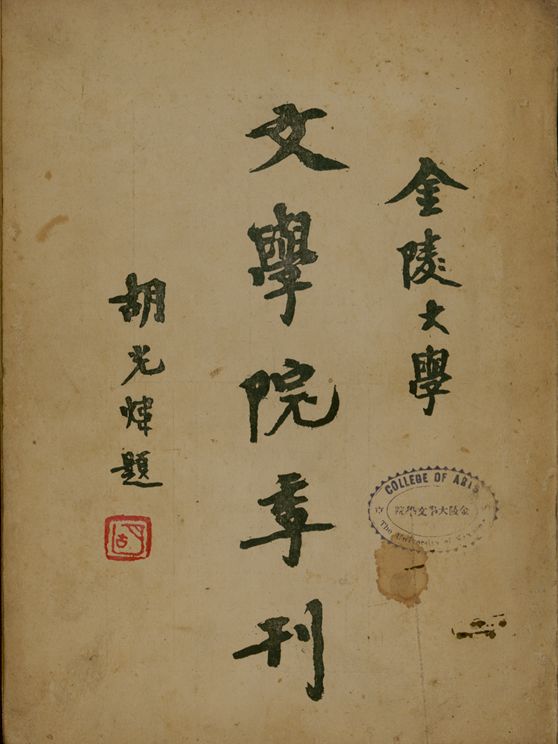 金陵大學
文學院季刊
胡光煒題
COLLEGE OF ARTS
金陵大學文學院
The University of